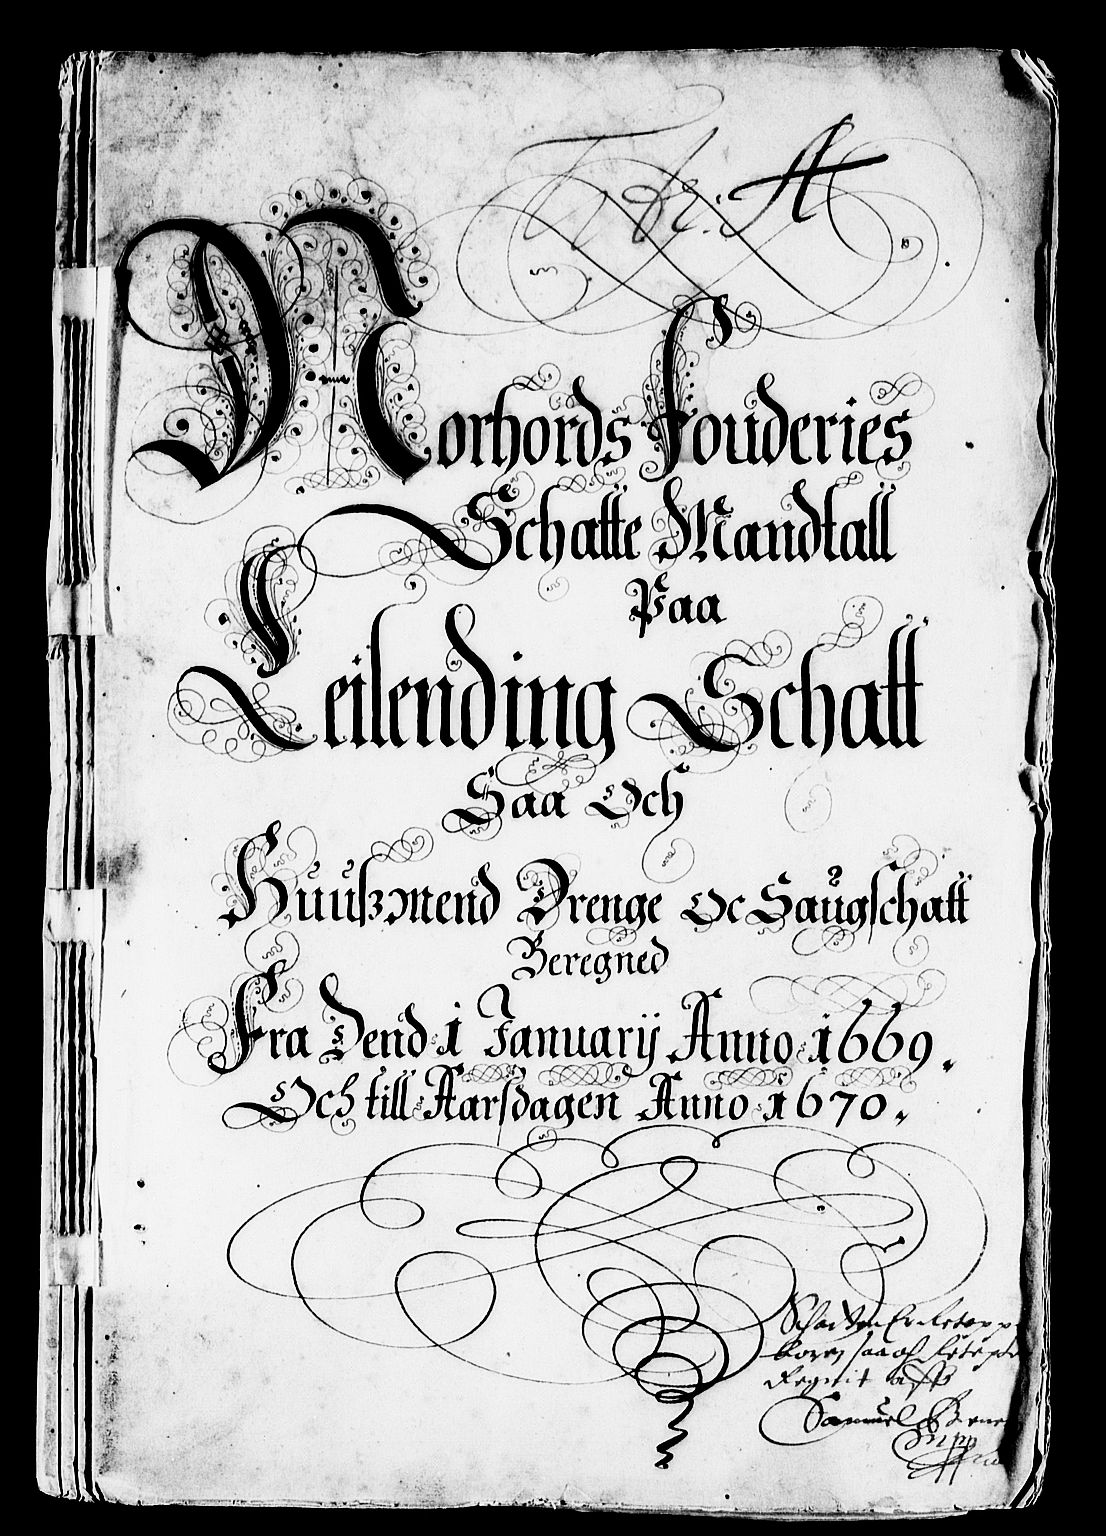 No: A
Morhords Fouderies
Schatte Mandtall
Paa
Leilending Schatt
Saa Och
Huuszmend Drenge Oc Saugschatt
Beregned
Fra Dend 1 Januarij Anno 1669.
Och till Aarsdagen Anno 1670.
saa och
Samuel